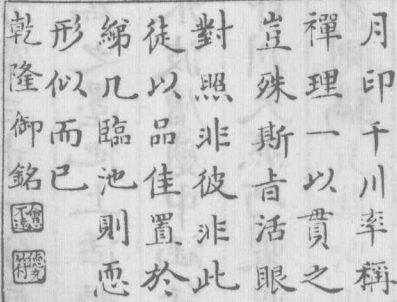 月印千川率稱
禪理一以貫之
豈殊斯㫖活眼
對照非彼非此
徒以品佳置於
綈几臨池則恧
形似而已
乾隆御銘
會心不遠
德充符